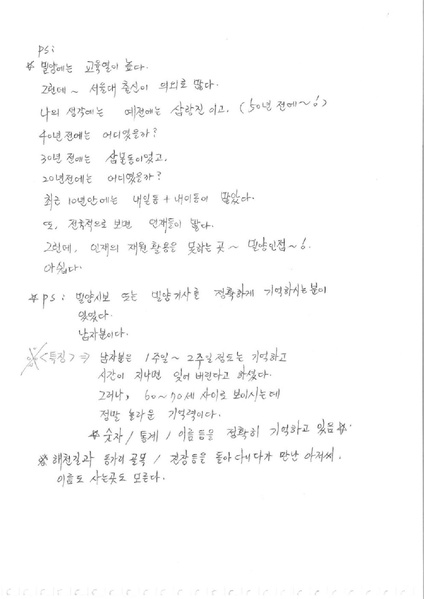 PS:
☆ 밀양에는 교육열이 높다.
그런데~ 서울대 출신이 의외로 많다.
나의 생각에는 예전에는 삼랑진이고. (50년 전에~!)
40년 전에는 어디였을까?
30년 전에는 삼문동이였고.
20년전에는 어디였을까?
최근 10년안에는 내일동 + 내이동이 많았다.
또, 전국적으로 보면 인재들이 많다.
그런데, 인재의 재원 활용을 못하는 곳~ 밀양인점~!
아쉽다.
☆ PS: 밀양시보 또는 밀양기사를 정확하게 기억하시는분이
있었다.
남자분이다.
<특징> ⇒ 남자분은 1주일 ~ 2주일 정도는 기억하고
시간이 지나면 잊어 버린다고 하였다.
그러나, 60~70세 사이로 보이시는데
정말 놀라운 기억력이다.
☆ 숫자 / 통계 / 이름 등을 정확히 기억하고 있음 ☆.
※ 해천길과 동가리 골목 / 전장등을 돌아 다니다가 만난 아저씨.
이름도 사는곳도 모른다.